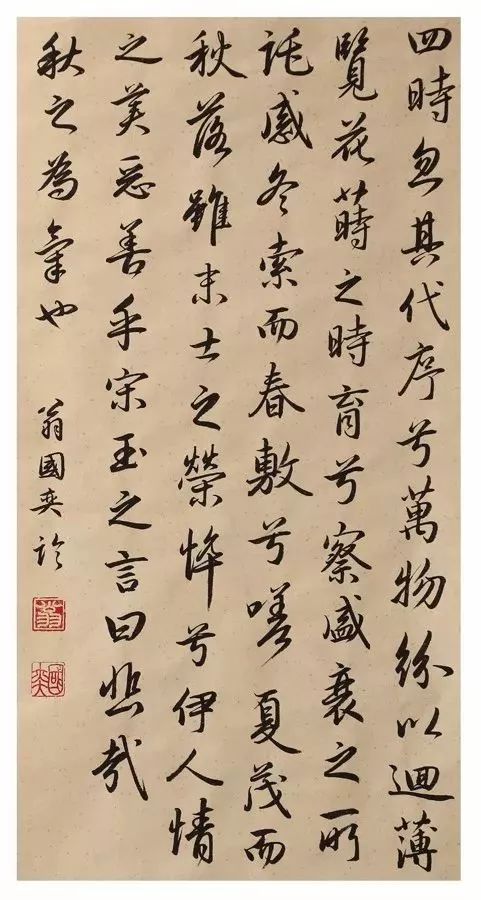 四時忽其代序兮萬物紛以迴薄
覽花蒔之時育兮察盛衰之所
託感冬索而春敷兮嗟夏茂而
秋落雖末士之榮悴兮伊人情
之美惡善乎宋玉之言曰悲哉
秋之為氣也
翁國奕